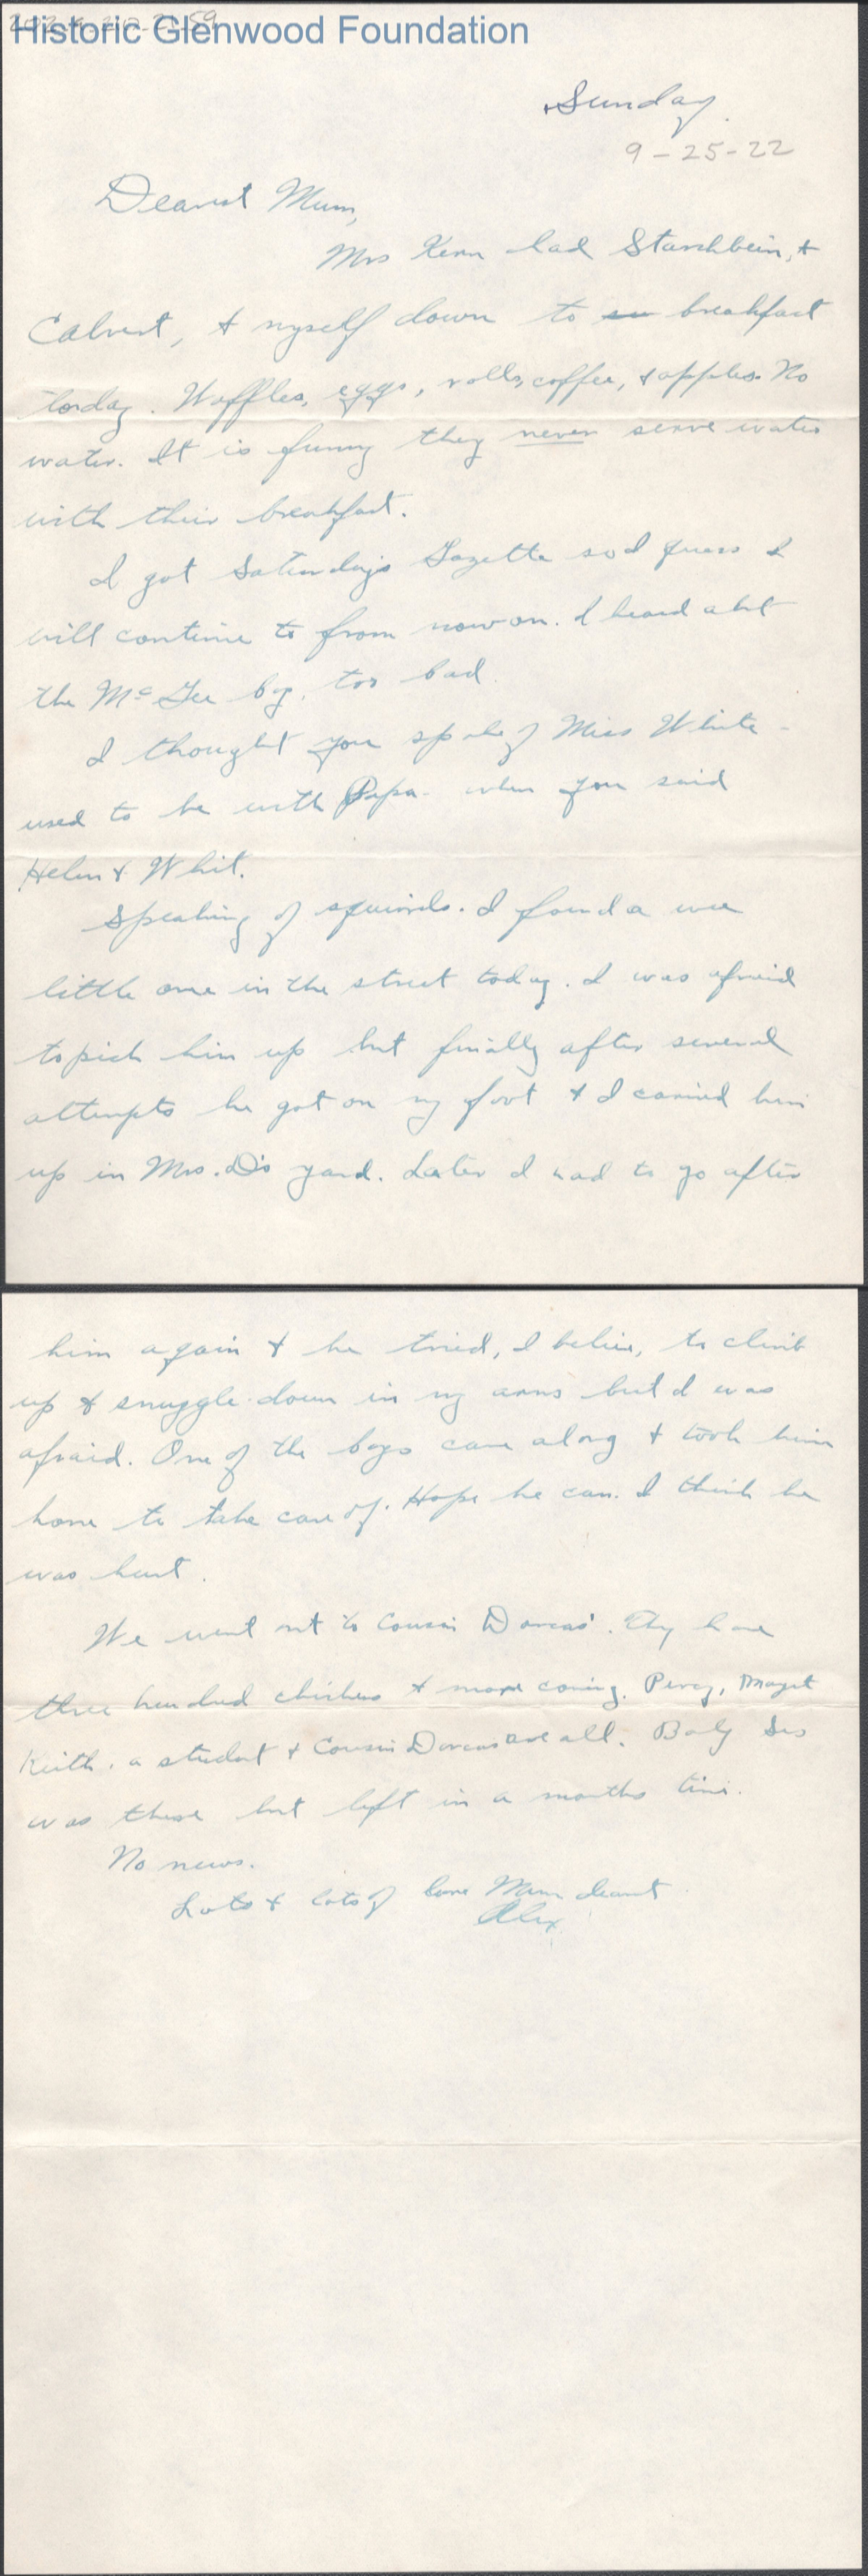 Historic Glenwood Foundation
Sunday.
9-25-22
Dearest Mum,
Mrs Kern had Starchbein, +
Calvert, + myself down to breakfast
today. Waffles, eggs, rolls, coffee, + apples. No
water. It is funny they never serve water
with their breakfast.
I got Saturdays Gazette so I guess I
will continue to from now on. I heard abt
the McGee boy. too bad.
I thought you spoke of Miss White -
used to be with Papa - when you said
Helen + Whit.
Speaking of squirrels. I found a wee
little one in the street today. I was afraid
to pick him up but finally after several
attempts he got on my foot + I carried him
up in Mrs. D's yard. Later I had to go after
him again + he tried, I believe, to climb
up + snuggle down in my arms but I was
afraid. One of the boys came along + took him
home to take care of. Hope he can. I think he
was hurt.
We went out to Cousin Dorcas'. They have
three hundred chickens + more coming. Percy, Margt
Keith, a student + Cousin Dorcas are all. Baby Sis
was there but left in a months time.
No news.
Lots + lots of love Mum dearest
Alex